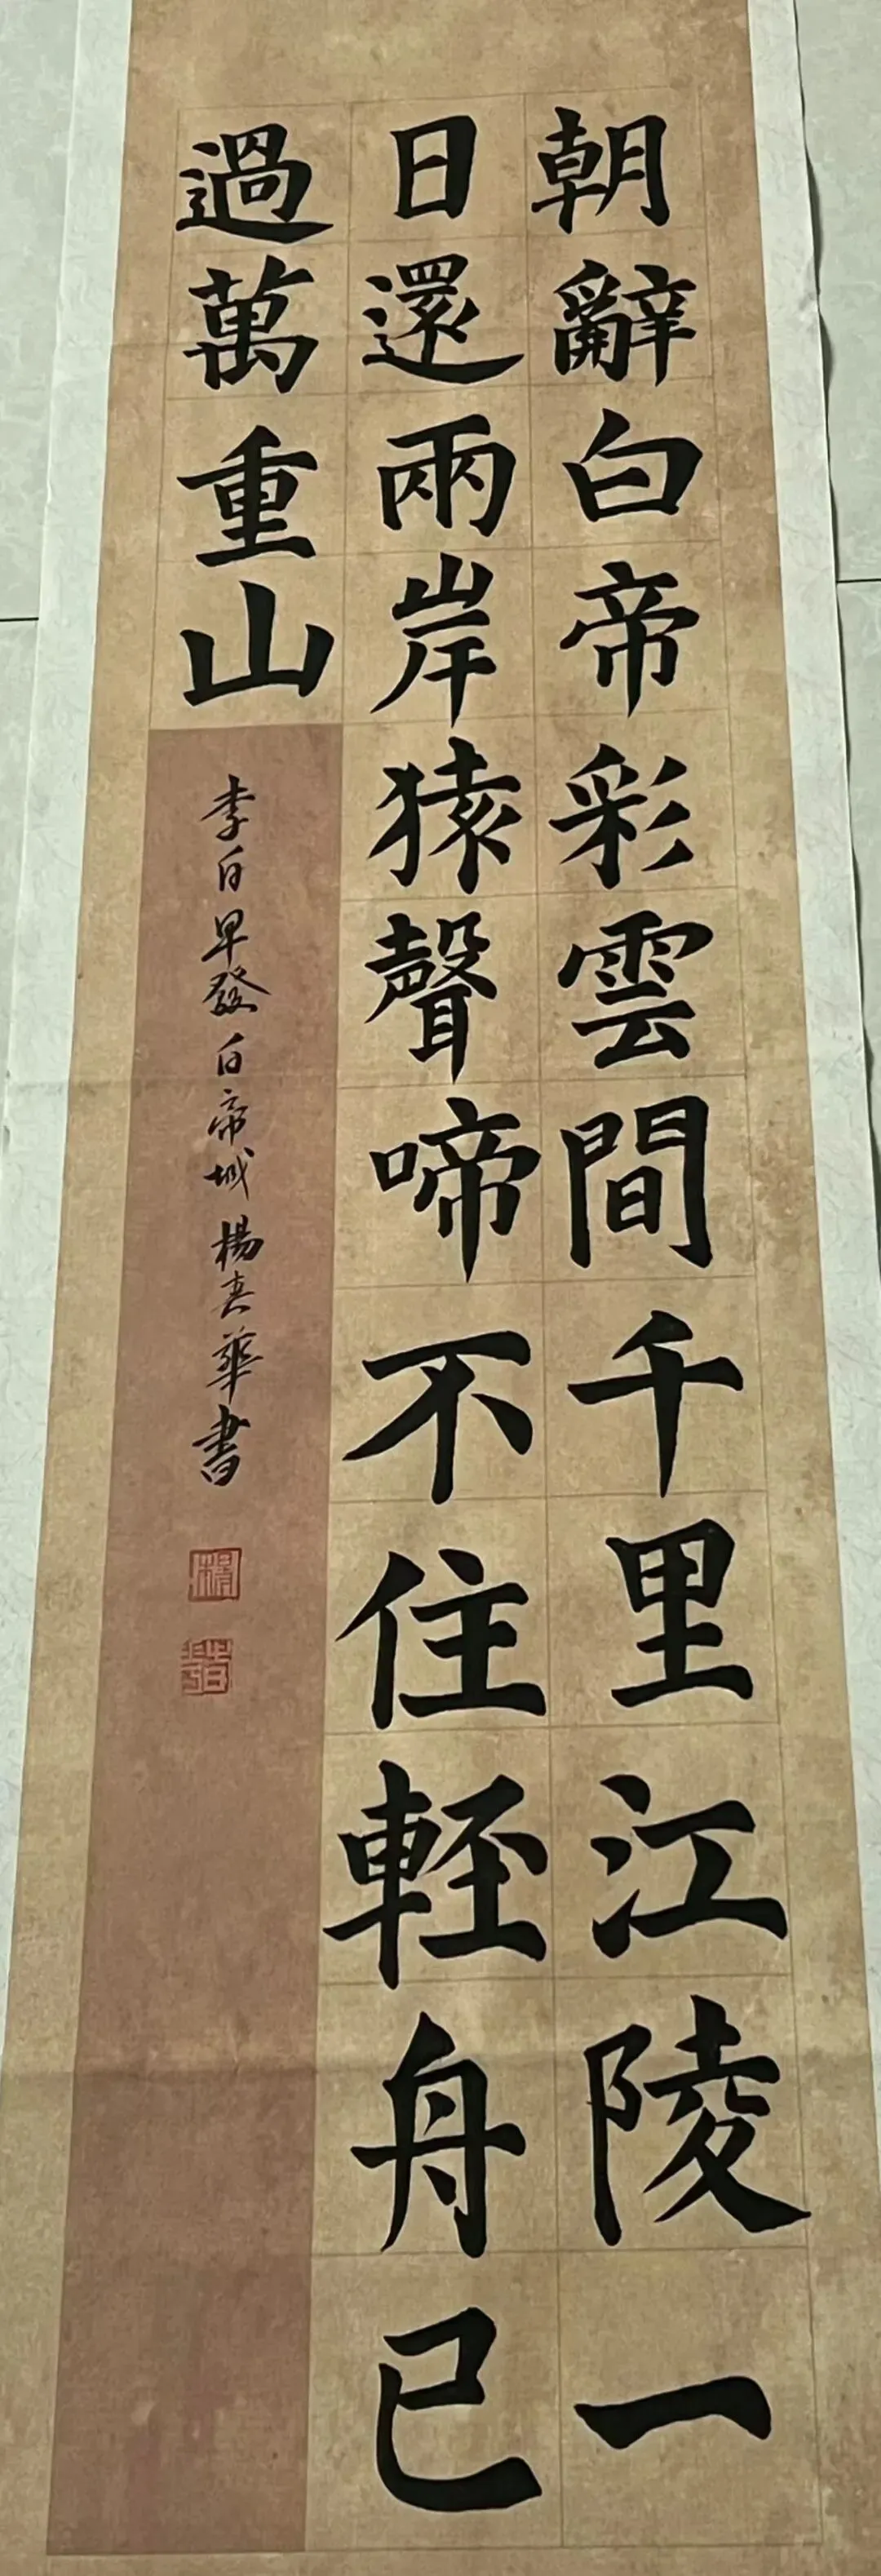 朝辭白帝彩雲間千里江陵一
日還兩岸猿聲啼不住輕舟已
過萬重山
李白早發白帝城楊真華書